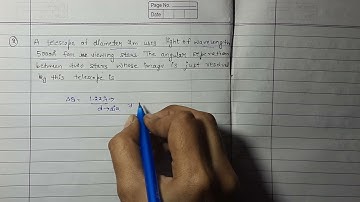 Page No
Date
A telescope of diameter 2m uses light of wavelength
5000Å for viewing stars. The angular seperation
between two stars whose image is just resolved
by this telescope is
Δθ = 1.22λ →
d → dia